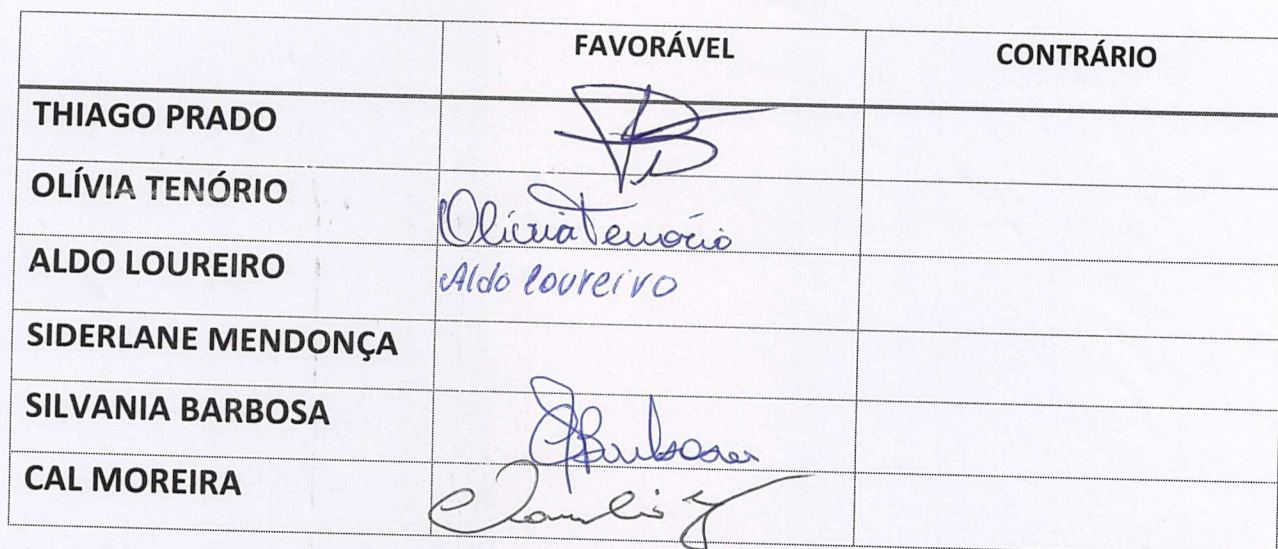 FAVORÁVEL CONTRÁRIO
THIAGO PRADO
OLÍVIA TENÓRIO Olívia Tenório
ALDO LOUREIRO Aldo loureiro
SIDERLANE MENDONÇA
SILVANIA BARBOSA SBarbosa
CAL MOREIRA